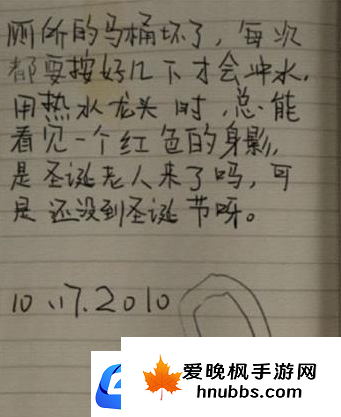 厕所的马桶坏了，每次
都要按好几下才会冲水.
用热水龙头时，总能
看见一个红色的身影，
是圣诞老人来了吗，可
是还没到圣诞节呀。
10.17.2010
爱晚枫手游网
hnubbs.com